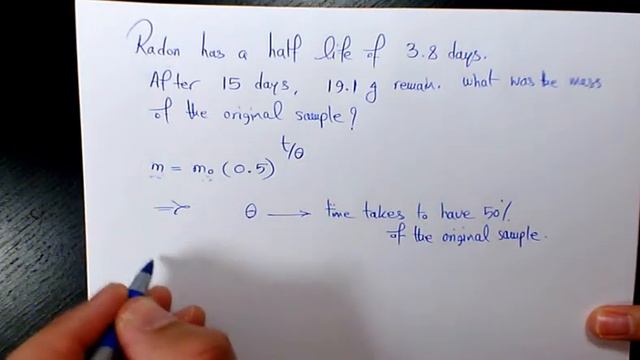 Radon has a half life of 3.8 days.
After 15 days, 19.1 g remain. what was the mass
of the original sample?
m = m₀ (0.5)^(t/θ)
⇒ θ → time takes to have 50%
of the original sample.